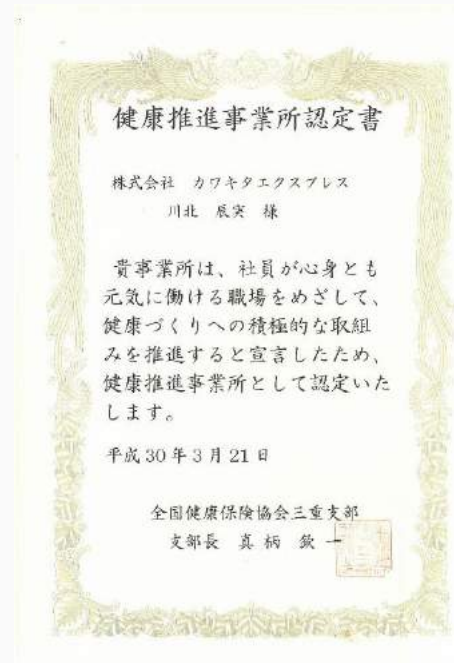 健康推進事業所認定書
株式会社 カワキタエクスプレス
川北 辰実 様
貴事業所は、社員が心身とも
元気に働ける職場をめざして、
健康づくりへの積極的な取組
みを推進すると宣言したため、
健康推進事業所として認定いた
します。
平成30年3月21日
全国健康保険協会三重支部
支部長 真柄 欽一